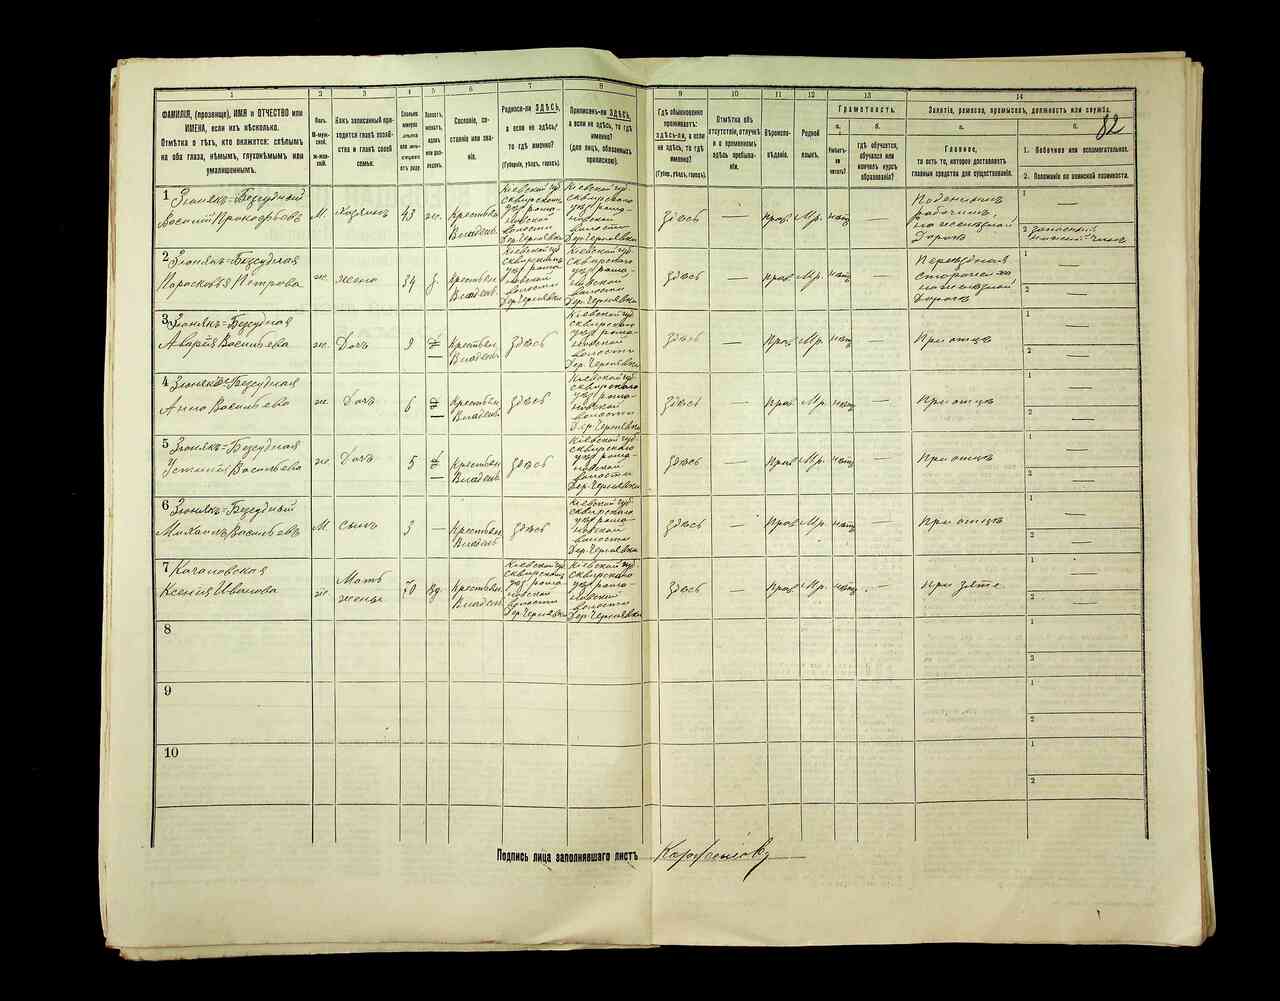 1 2 3 4 5 6 7 8 9 10 11 12 13 14
82
ФАМИЛІЯ, (прозвище), ИМЯ и ОТЧЕСТВО или
ИМЕНА, если ихъ нѣсколько.
Отмѣтка о тѣхъ, кто окажется: слѣпымъ
на оба глаза, нѣмымъ, глухонѣмымъ или
умалишеннымъ.
Полъ.
М-муж-
ской.
Ж-жен-
скій.
Какъ записанный при-
ходится главѣ хозяй-
ства и главѣ своей
семьи.
Сословіе, со-
стояніе или зва-
ніе.
Родился-ли ЗДѢСЬ,
а если не здѣсь,
то гдѣ именно?
(Губернія, уѣздъ, городъ).
Приписанъ-ли ЗДѢСЬ,
а если не здѣсь, то гдѣ
именно?
(для лицъ, обязанныхъ
припискою).
Гдѣ обыкновенно
проживаетъ:
здѣсь-ли, а если
не здѣсь, то гдѣ
именно?
(Губер., уѣздъ, городъ).
Отмѣтка объ
отсутствіи, отлучкѣ
и о временномъ
здѣсь пребыва-
ніи.
Вѣроиспо-
вѣданіе.
Родной
языкъ.
Грамотность.
а. б.
Умѣетъ-
ли
читать?
гдѣ обучается,
обучался или
кончилъ курсъ
образованія?
Занятіе, ремесло, промыселъ, должность или служба.
а. б.
Главное,
то есть то, которое доставляетъ
главныя средства для существованія.
1. Побочное или вспомогательное.
2. Положеніе по воинской повинности.
1 Зюнякъ=Безсудный
Василій Прокофьевъ М. Хозяинъ 43 ж. Крестьян. Владѣль.
Кіевской губ Сквирскаго уѣз рома-новской волости Дер. Чернявка
Кіевской губ Сквирскаго уѣз рома-новской волости Дер. Чернявка
здѣсь — Прав. Мр. нѣтъ —
Поденщикъ
рабочимъ,
на желѣзной
Дорогѣ
1 —
2 запасный
нижній чинъ
2 Зюнякъ=Безсудная
Парасковья Петрова ж. жена 34 Крестьян. Владѣль.
Кіевской губ Сквирскаго уѣз рома-новской волости Дер. Чернявка
Кіевской губ Сквирскаго уѣз рома-новской волости Дер. Чернявка
здѣсь — Прав. Мр. нѣтъ —
Переѣздная
сторожиха
на желѣзной
Дорогѣ
1 —
2 —
3 Зюнякъ=Безсудная
Васильева ж. Дочь 9 Крестьян. Владѣль. здѣсь
Кіевской губ Сквирскаго уѣз рома-новской волости Дер. Чернявка
здѣсь — Прав. Мр. нѣтъ — При отцѣ
1 —
2 —
4 Зюнякъ=Безсудная
Анна Васильева ж. Дочь 6 Крестьян. Владѣль. здѣсь
Кіевской губ Сквирскаго уѣз рома-новской волости Дер. Чернявка
здѣсь — Прав. Мр. нѣтъ — При отцѣ
1 —
2 —
5 Зюнякъ=Безсудная
Устинія Васильева ж. Дочь 5 Крестьян. Владѣль. здѣсь
Кіевской губ Сквирскаго уѣз рома-новской волости Дер. Чернявка
здѣсь — Прав. Мр. нѣтъ — При отцѣ
1 —
2 —
6 Зюнякъ=Безсудный
Михаилъ Васильевъ М. сынъ 3 — Крестьян. Владѣль. здѣсь
Кіевской губ Сквирскаго уѣз рома-новской волости Дер. Чернявка
здѣсь — Прав. Мр. нѣтъ — При отцѣ
1 —
2 —
7 Качановская
Ксенія Иванова ж. Мать жены 70 вд. Крестьян. Владѣль.
Кіевской губ Сквирскаго уѣз рома-новской волости Дер. Чернявка
Кіевской губ Сквирскаго уѣз рома-новской волости Дер. Чернявка
здѣсь — Прав. Мр. нѣтъ — При зятѣ
1 —
2 —
8 1
2
9 1
2
10 1
2
Подпись лица заполнявшаго листъ